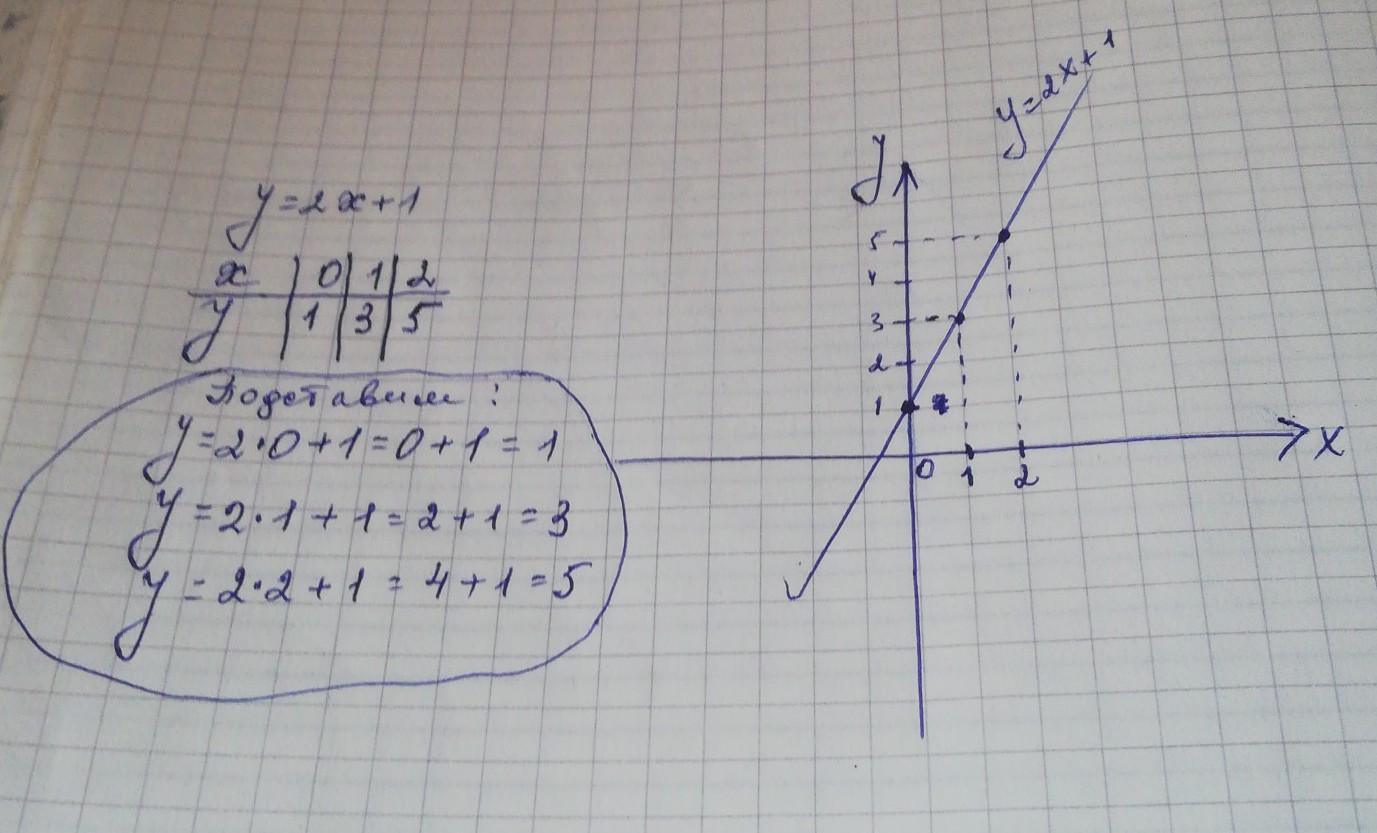 y=2x+1
x | 0 | 1 | 2
y | 1 | 3 | 5
Подставим:
y=2·0+1=0+1=1
y=2·1+1=2+1=3
y=2·2+1=4+1=5
y=2x+1
y
5
4
3
2
1
0 1 2
x